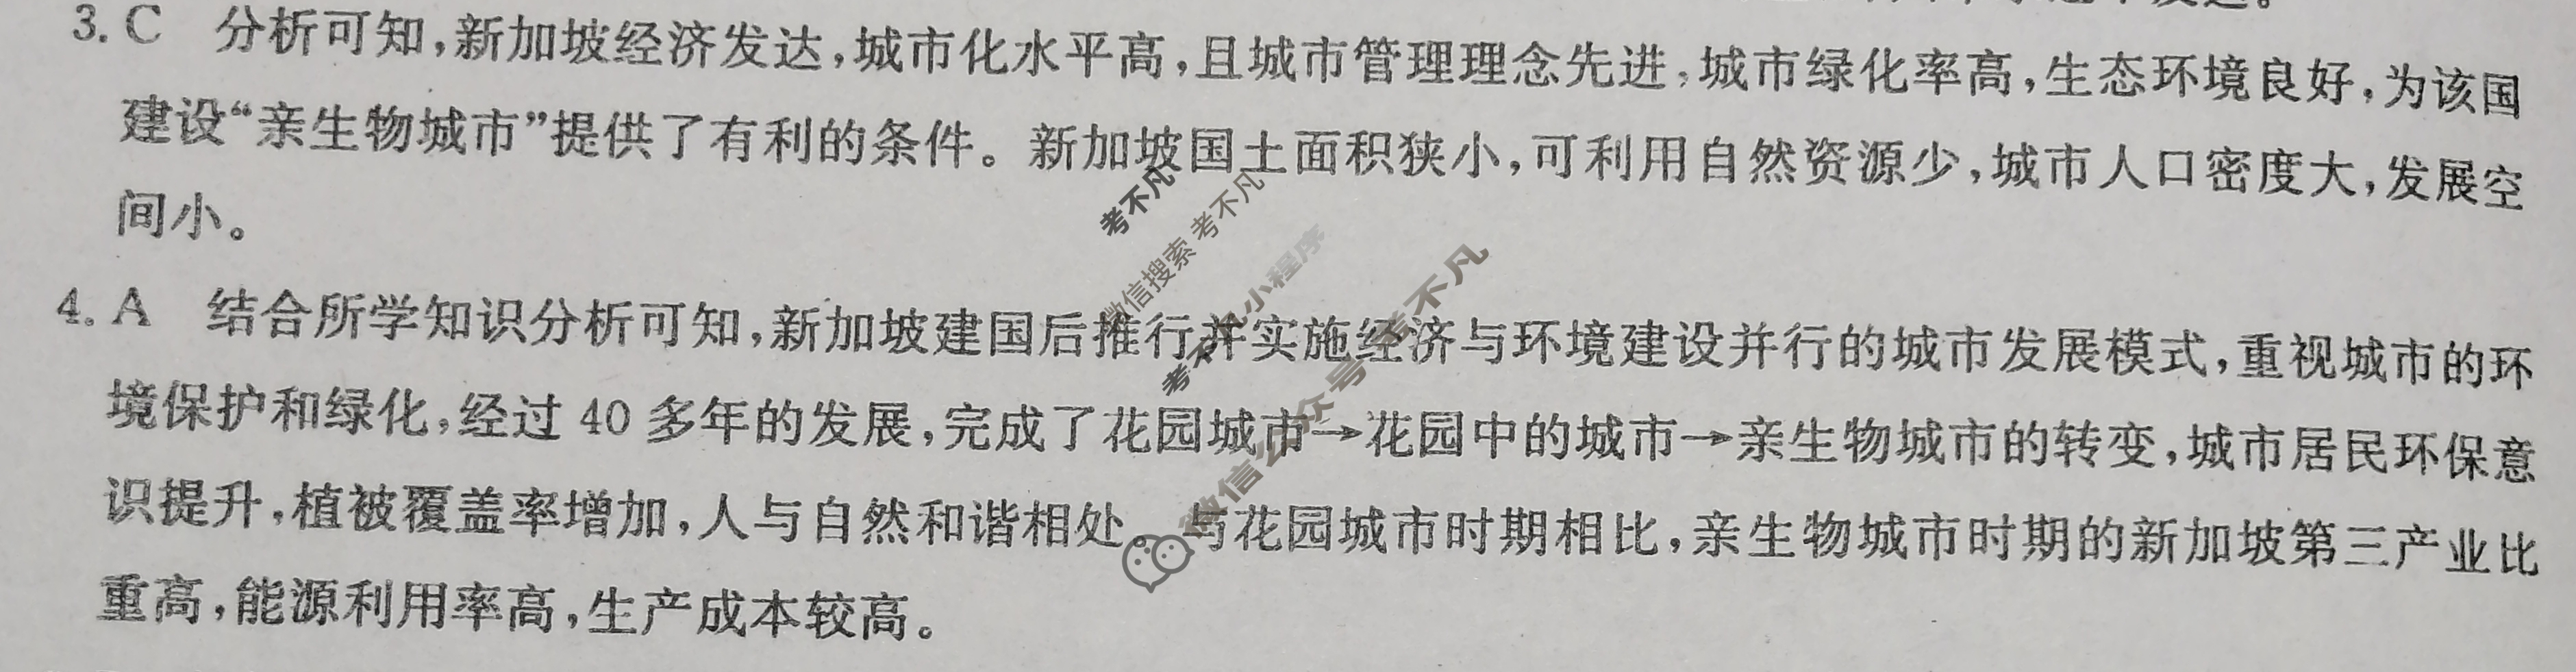 3. C 分析可知,新加坡经济发达,城市化水平高,且城市管理理念先进,城市绿化率高,生态环境良好,为该国
建设“亲生物城市”提供了有利的条件。新加坡国土面积狭小,可利用自然资源少,城市人口密度大,发展空
间小。
4. A 结合所学知识分析可知,新加坡建国后推行并实施经济与环境建设并行的城市发展模式,重视城市的环
境保护和绿化,经过 40 多年的发展,完成了花园城市→花园中的城市→亲生物城市的转变,城市居民环保意
识提升,植被覆盖率增加,人与自然和谐相处。与花园城市时期相比,亲生物城市时期的新加坡第三产业比
重高,能源利用率高,生产成本较高。
考不凡
微信搜索 考不凡
考不凡小程序
微信公众号 考不凡